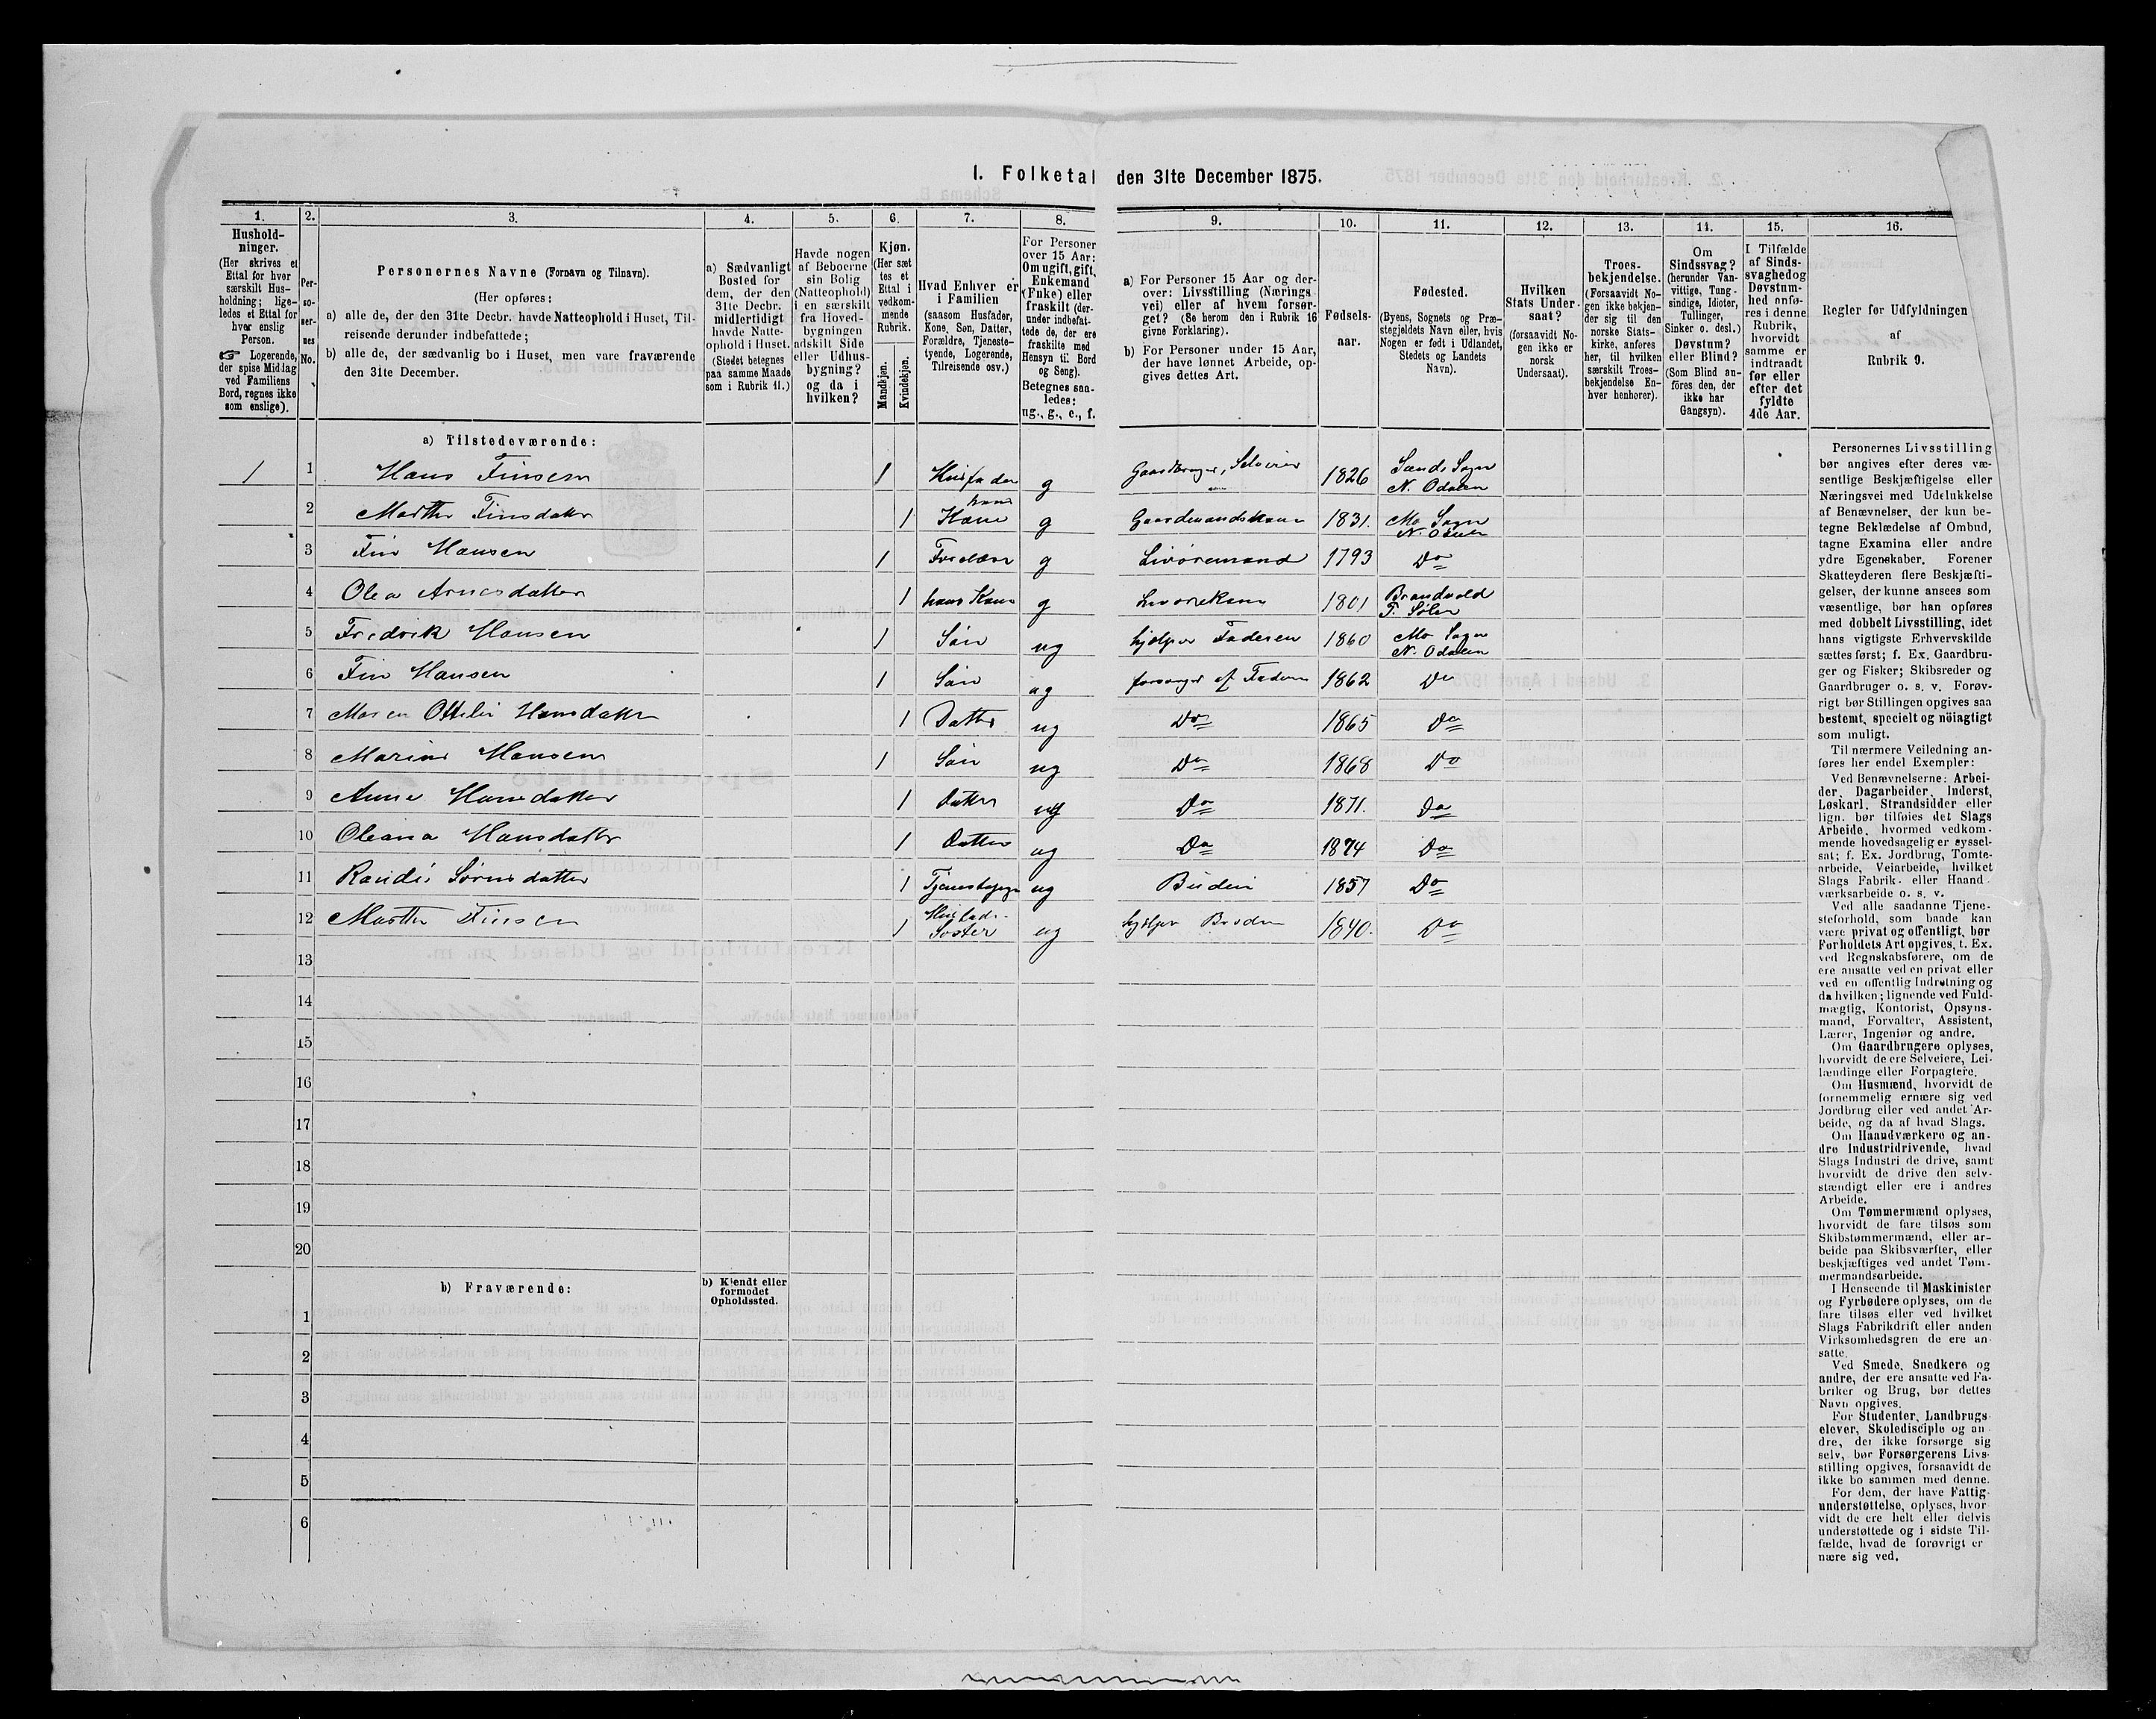 1. Folketal den 31te December 1875.
1. 2. 3. 4. 5. 6. 7. 8. 9. 10. 11. 12. 13. 14. 15. 16.
Hushold-
ninger.
(Her skrives et
Ettal for hver
særskilt Hus-
holdning; lige-
ledes et Ettal for
hver enslig
Person.
☞ Logerende,
der spise Middag
ved Familiens
Bord, regnes ikke
som enslige).
Per-
so-
ner-
nes
No.
Personernes Navne (Fornavn og Tilnavn).
(Her opføres:
a) alle de, der den 31te Decbr. havde Natteophold i Huset, Til-
reisende derunder indbefattede;
b) alle de, der sædvanlig bo i Huset, men vare fraværende
den 31te December.
a) Sædvanligt
Bosted for
dem, der den
31te Decbr.
midlertidigt
havde Natte-
ophold i Huset.
(Stedet betegnes
paa samme Maade
som i Rubrik 11.)
Havde nogen
af Beboerne
sin Bolig
(Natteophold)
i en særskilt
fra Hoved-
bygningen
adskilt Side
eller Udhus-
bygning?
og da i
hvilken?
Kjøn.
(Her sæt
tes et
Ettal i
vedkom-
mende
Rubrik.
Mandkjøn.
Kvindekjøn.
Hvad Enhver er
i Familien
(saasom Husfader,
Kone, Søn, Datter,
Forældre, Tjeneste-
tyende, Logerende,
Tilreisende osv.)
For Personer
over 15 Aar:
Om ugift, gift,
Enkemand
(Enke) eller
fraskilt (der-
under indbefat-
tede de, der ere
fraskilte med
Hensyn til Bord
og Seng).
Betegnes saa-
ledes:
ug., g., e., f.
a) For Personer 15 Aar og der-
over: Livsstilling (Nærings
vei) eller af hvem forsør-
get? (Se herom den i Rubrik 16
givne Forklaring).
b) For Personer under 15 Aar,
der have lønnet Arbeide, op-
gives dettes Art.
Fødsels-
aar.
Fødested.
(Byens, Sognets og Præ-
stegjeldets Navn eller, hvis
Nogen er født i Udlandet,
Stedets og Landets
Navn).
Hvilken
Stats Under-
saat?
(forsaavidt No-
gen ikke er
norsk
Undersaat).
Troes-
bekjendelse.
(Forsaavidt No-
gen ikke bekjen-
der sig til den
norske Stats-
kirke, anføres
her, til hvilken
særskilt Troes-
bekjendelse En-
hver henhører).
Om
Sindssvag?
(herunder Van-
vittige, Tung-
sindige, Idioter,
Tullinger,
Sinker o. desl.)
Døvstum?
eller Blind?
(Som Blind an-
føres den, der
ikke har
Gangsyn).
I Tilfælde
af Sinds-
svaghed og
Døvstum-
hed anfø-
res i denne
Rubrik,
hvorvidt
samme er
indtraadt
før eller
efter det
fyldte
4de Aar.
Regler for Udfyldningen
af
Rubrik 9.
a) Tilstedeværende:
1 1 Hans Finsen 1 Husfader g Gaardbruger, Selveier 1826 Sands Sogn N. Odalen
2 Marthe Finsdatter 1 hans Kone g Gaardmandskone 1831. Mo Sogn N. Odalen
3 Fin Hansen 1 Forældre g Livøremand 1793 Do
4 Olea Arnesdatter 1 hans Kone g Livørekone 1801 Brandvold S. Solør
5 Fredrik Hansen 1 Søn ug hjelper Faderen 1860 Mo Sogn N. Odalen
6 Fin Hansen 1 Søn ug forsørges af Faderen 1862 Do
7 Maren Ottilie Hansdatter 1 Datter ug Do 1865 Do
8 Marius Hansen 1 Søn ug Do 1868 Do
9 Anne Hansdatter 1 Datter ug Do 1871. Do
10 Oleana Hansdatter 1 Datter ug Do 1874 Do
11 Randi Sørensdatter 1 Tjenestepige ug Budeie 1857 Do
12 Marthe Finsen 1 Husfad. Søster ug hjelper Broderen 1840. Do
13
14
15
16
17
18
19
20
b) Fraværende:
b) Kjendt eller
formodet
Opholdssted.
1
2
3
4
5
6
Personernes Livsstilling
bør angives efter deres væ-
sentlige Beskjæftigelse eller
Næringsvei med Udelukkelse
af Benævnelser, der kun be-
tegne Beklædelse af Ombud,
tagne Examina eller andre
ydre Egenskaber. Forener
Skatteyderen flere Beskjæfti-
gelser, der kunne ansees som
væsentlige, bør han opføres
med dobbelt Livsstilling, idet
hans vigtigste Erhvervskilde
sættes først; f. Ex. Gaardbru-
ger og Fisker; Skibsreder og
Gaardbruger o. s. v. Forøv-
rigt bør Stillingen opgives saa
bestemt, specielt og nöiagtigt
som muligt.
Til nærmere Veiledning an-
føres her endel Exempler:
Ved Benævnelserne: Arbei-
der, Dagarbeider, Inderst,
Løskarl, Strandsidder eller
lign. bør tilføies det Slags
Arbeide, hvormed vedkom-
mende hovedsagelig er syssel-
sat; f. Ex. Jordbrug, Tomte-
arbeide, Veiarbeide, hvilket
Slags Fabrik- eller Haand-
værksarbeide o. s. v.
Ved alle saadanne Tjene-
steforhold, som baade kan
være privat og offentligt, bør
Forholdets Art opgives, t. Ex.
ved Regnskabsførere, om de
ere ansatte ved en privat eller
ved en offentlig Indretning og
da hvilken; lignende ved Fuld-
mægtig, Kontorist, Opsyns-
mand, Forvalter, Assistent,
Lærer, Ingeniør og andre.
Om Gaardbrugere oplyses,
hvorvidt de ere Selveiere, Lei-
lændinge eller Forpagtere.
Om Husmænd, hvorvidt de
fornemmelig ernære sig ved
Jordbrug eller ved andet Ar-
beide, og da af hvad Slags.
Om Haandværkere og an-
dre Industridrivende, hvad
Slags Industri de drive, samt
hvorvidt de drive den selv-
stændigt eller ere i andres
Arbeide.
Om Tømmermænd oplyses,
hvorvidt de fare tilsøs som
Skibstømmermænd, eller ar-
beide paa Skibsværfter, eller
beskjæftiges ved andet Tøm-
mermandsarbeide.
I Henseende til Maskinister
og Fyrbødere oplyses, om de
fare tilsøs eller ved hvilket
Slags Fabrikdrift eller anden
Virksomhedsgren de ere an-
satte.
Ved Smede, Snedkere og
andre, der ere ansatte ved Fa-
briker og Brug, bør dettes
Navn opgives.
For Studenter, Landbrugs
elever, Skoledisciple og an-
dre, der ikke forsørge sig
selv, bør Forsørgerens Livs-
stilling opgives, forsaavidt de
ikke bo sammen med denne.
For dem, der have Fattig-
understøttelse, oplyses, hvor-
vidt de ere helt eller delvis
understøttede og i sidste Til-
fælde, hvad de forøvrigt er-
nære sig ved.